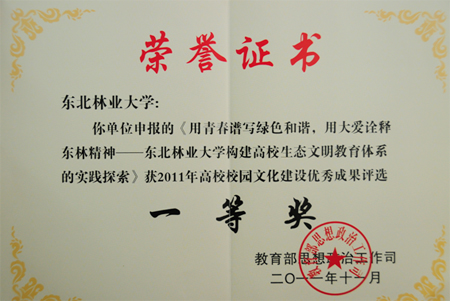 荣誉证书
东北林业大学：
你单位申报的《用青春谱写绿色和谐，用大爱诠释
东林精神——东北林业大学构建高校生态文明教育体系
的实践探索》获2011年高校校园文化建设优秀成果评选
一等奖
教育部思想政治工作司
二〇一一年十一月
教育部思想政治工作司